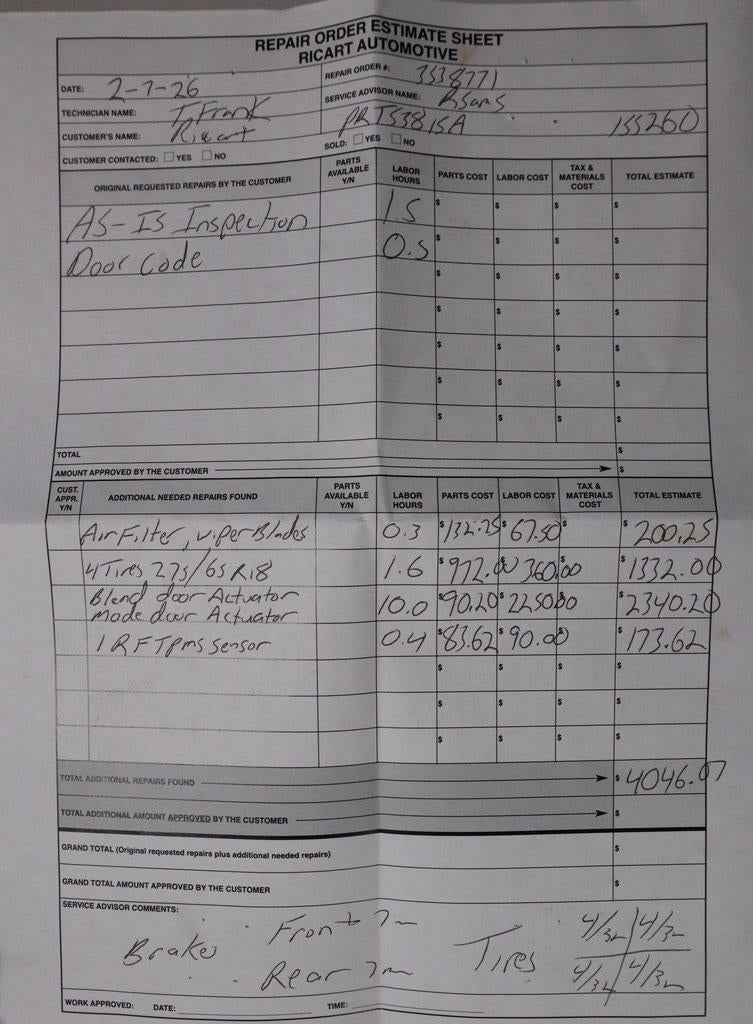 REPAIR ORDER ESTIMATE SHEET
RICART AUTOMOTIVE
DATE: 2-7-26 REPAIR ORDER #: 3538771
TECHNICIAN NAME: T Frank SERVICE ADVISOR NAME: RSams
CUSTOMER'S NAME: Ricart PRT53815A 155260
CUSTOMER CONTACTED: YES NO SOLD: YES NO
ORIGINAL REQUESTED REPAIRS BY THE CUSTOMER PARTS AVAILABLE Y/N LABOR HOURS PARTS COST LABOR COST TAX & MATERIALS COST TOTAL ESTIMATE
AS-IS Inspection 1.5 $ $ $ $
Door Code 0.5 $ $ $ $
$ $ $ $
$ $ $ $
$ $ $ $
$ $ $ $
$ $ $ $
TOTAL $
AMOUNT APPROVED BY THE CUSTOMER $
CUST. APPR. Y/N ADDITIONAL NEEDED REPAIRS FOUND PARTS AVAILABLE Y/N LABOR HOURS PARTS COST LABOR COST TAX & MATERIALS COST TOTAL ESTIMATE
Air Filter, wiper Blades 0.3 $132.75 $67.50 $ $200.25
4 Tires 275/65R18 1.6 $972.00 360.00 $1332.00
Blend door Actuator
Mode door Actuator 10.0 $90.20 $2250.00 $2340.20
1 RF TPMS Sensor 0.4 $83.62 $90.00 $173.62
$ $ $ $
$ $ $ $
$ $ $ $
TOTAL ADDITIONAL REPAIRS FOUND $4046.07
TOTAL ADDITIONAL AMOUNT APPROVED BY THE CUSTOMER $
GRAND TOTAL (Original requested repairs plus additional needed repairs) $
GRAND TOTAL AMOUNT APPROVED BY THE CUSTOMER $
SERVICE ADVISOR COMMENTS:
Brakes Front 7m Tires 4/32 4/32
Rear 7m 4/32 4/32
WORK APPROVED: DATE: TIME: